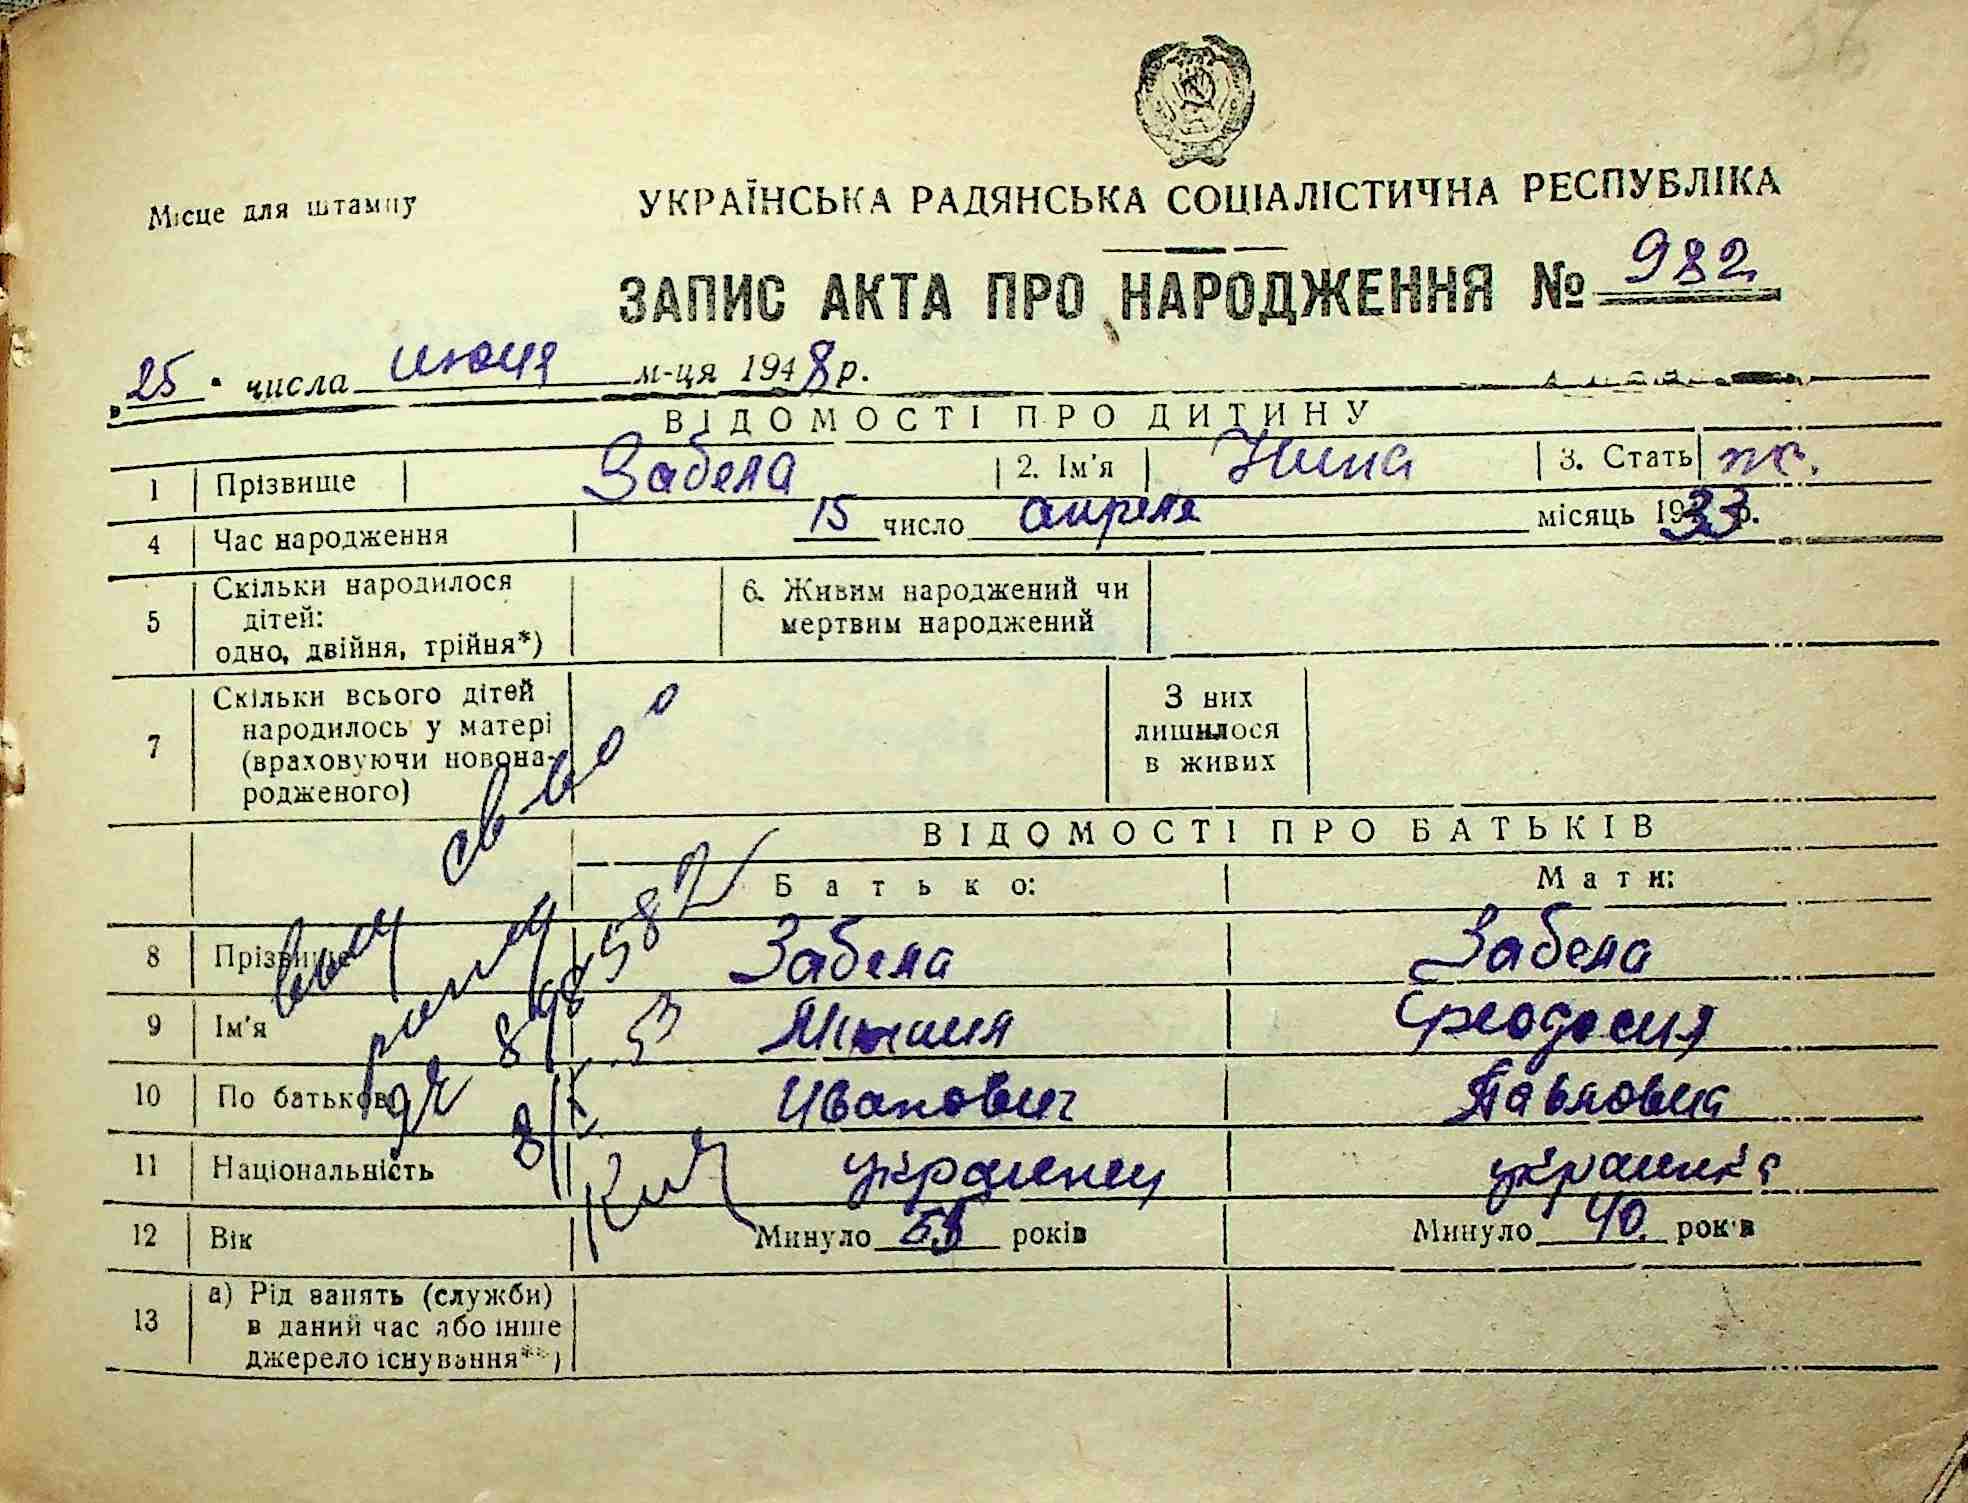 56
Місце для штампу
УКРАЇНСЬКА РАДЯНСЬКА СОЦІАЛІСТИЧНА РЕСПУБЛІКА
ЗАПИС АКТА ПРО НАРОДЖЕННЯ № 982
"25" числа июня м-ця 1948 р.
ВІДОМОСТІ ПРО ДИТИНУ
1 Прізвище Забела 2. Ім'я Нина 3. Стать ж.
4 Час народження 15 число апреля місяць 1933 р.
5 Скільки народилося
дітей:
одно, двійня, трійня*)
6. Живим народжений чи
мертвим народжений
7 Скільки всього дітей
народилось у матері
(враховуючи новона-
родженого)
З них
лишилося
в живих
ВІДОМОСТІ ПРО БАТЬКІВ
Батько: Мати:
8 Прізвище Забела Забела
9 Ім'я Феодосия
10 По батькові Иванович Павловна
11 Національність украинец украинка
12 Вік Минуло років Минуло 40 років
13 а) Рід занять (служби)
в даний час або інше
джерело існування**)